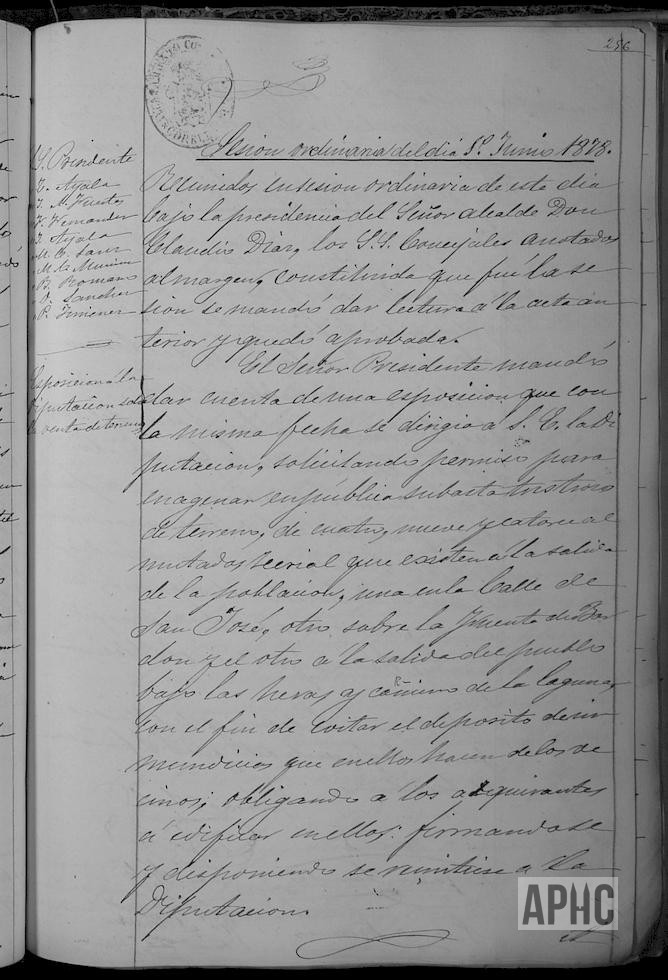 256
Sesion ordinaria del dia 8º Junio 1878.
S. Presidente
Ayala
Fuertes
Hernandez
Ayala
M. Sanz
Romano
Sanchez
P. Jimenez
Reunidos en sesion ordinaria de este dia
bajo la presidencia del Señor alcalde Don
Claudio Diaz, los S.S. Concejales anotados
al margen, constituida que fué la se
sion se mandó dar lectura á la acta an
terior y quedó aprobada.
Esposicion á la
Diputacion sob
la venta de terreno
El Señor Presidente mandó
dar cuenta de una esposicion que con
la misma fecha se dirigio á S. E. la Di
putacion, solicitando permiso para
enagenar en pública subasta tres trozos
de terreno, de cuatro, nueve y catorce al
mutados secrial que existen á la salida
de la poblacion, una en la Calle de
San José, otro sobre la Fuente de Bor
don y el otro á la salida del pueblo
bajo las heras y camino de la laguna,
con el fin de evitar el deposito de in
mundicias que en ellos hacen de los ve
cinos; obligando á los adquirantes
á edificar en ellos; firmandose
y disponiendo se remitiese á la
Diputacion.
APHC